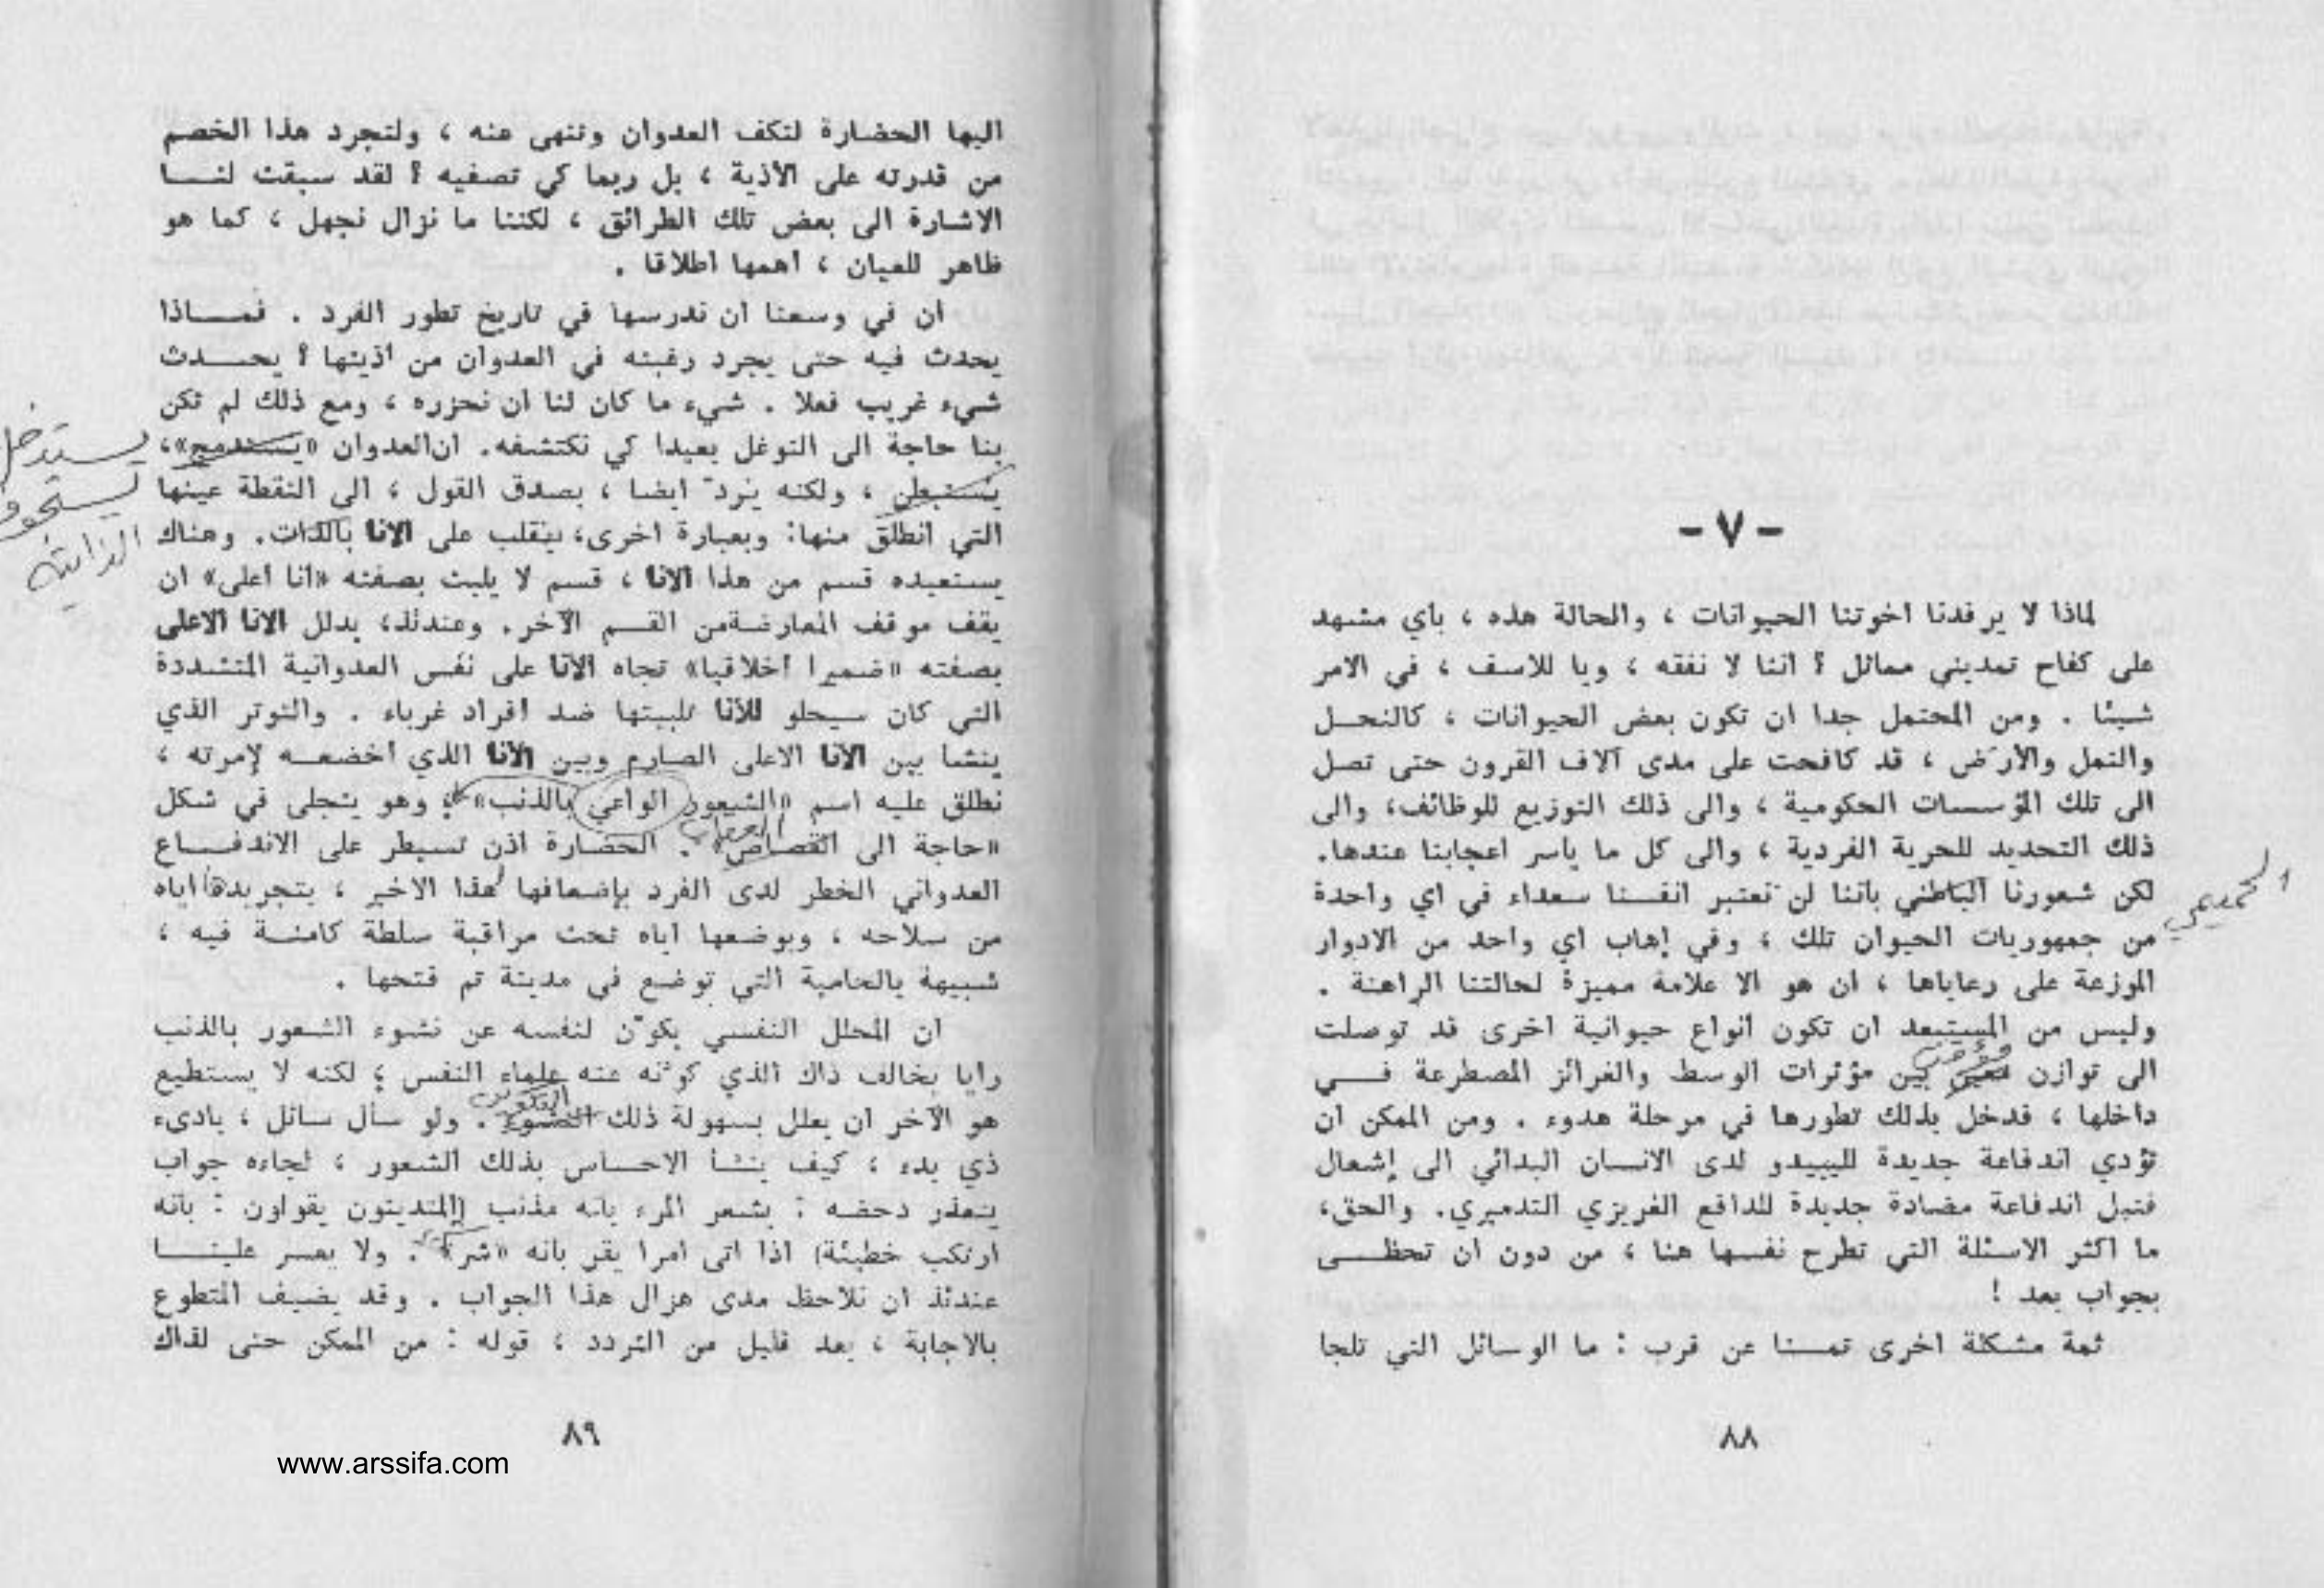 - ٧ -
لماذا لا يرفدنا اخوتنا الحيوانات ، والحالة هذه ، باي مشهد
على كفاح تمديني مماثل ؟ اننا لا نفقه ، ويا للاسف ، في الامر
شيئا . ومن المحتمل جدا ان تكون بعض الحيوانات ، كالنحـل
والنمل والأرَض ، قد كافحت على مدى آلاف القرون حتى تصل
الى تلك المؤسسات الحكومية ، والى ذلك التوزيع للوظائف، والى
ذلك التحديد للحرية الفردية ، والى كل ما يأسر اعجابنا عندها.
لكن شعورنا الباطني باننا لن نعتبر انفسنا سعداء في اي واحدة
الحميمي
من جمهوريات الحيوان تلك ، وفي إهاب اي واحد من الادوار
الموزعة على رعاياها ، ان هو الا علامة مميزة لحالتنا الراهنة .
وليس من المستبعد ان تكون انواع حيوانية اخرى قد توصلت
مؤقت
الى توازن معين بين مؤثرات الوسط والغرائز المصطرعة فـــي
داخلها ، فدخل بذلك تطورها في مرحلة هدوء . ومن الممكن ان
تؤدي اندفاعة جديدة لليبيدو لدى الانسان البدائي الى إشعال
فتيل اندفاعة مضادة جديدة للدافع الغريزي التدميري. والحق،
ما اكثر الاسئلة التي تطرح نفسها هنا ، من دون ان تحظـــى
بجواب بعد !
ثمة مشكلة اخرى تمسنا عن قرب : ما الوسائل التي تلجا
٨٨
اليها الحضارة لتكف العدوان وتنهى عنه ، ولتجرد هذا الخصم
من قدرته على الأذية ، بل ربما كي تصفيه ؟ لقد سبقت لنـــا
الاشارة الى بعض تلك الطرائق ، لكننا ما نزال نجهل ، كما هو
ظاهر للعيان ، اهمها اطلاقا .
ان في وسعنا ان ندرسها في تاريخ تطور الفرد . فمـــاذا
يحدث فيه حتى يجرد رغبته في العدوان من اذيتها ؟ يحـــدث
شيء غريب فعلا . شيء ما كان لنا ان نحزره ، ومع ذلك لم تكن
بنا حاجة الى التوغل بعيدا كي نكتشفه. ان العدوان «يستدمج»،
يستدخل
يُستبطن ، ولكنه يُردّ ايضا ، بصدق القول ، الى النقطة عينها
التي انطلق منها: وبعبارة اخرى، ينقلب على الانا بالذات. وهناك
الذاتية
يستعيده قسم من هذا الانا ، قسم لا يلبث بصفته «انا اعلى» ان
يقف موقف المعارضة من القسـم الآخر. وعندئذ، يدلل الانا الاعلى
بصفته «ضميرا اخلاقيا» تجاه الانا على نفس العدوانية المتشددة
التي كان سيحلو للأنا تلبيتها ضد افراد غرباء . والتوتر الذي
ينشا بين الانا الاعلى الصارم وبين الانا الذي اخضعـه لإمرته ،
نطلق عليه اسم «الشعور الواعي بالذنب» ؛ وهو يتجلى في شكل
العقاب
«حاجة الى القصاص» . الحضارة اذن تسيطر على الاندفـاع
العدواني الخطر لدى الفرد بإضعافها هذا الاخير ، بتجريدها اياه
من سلاحه ، وبوضعها اياه تحت مراقبة سلطة كامنـة فيه ،
شبيهة بالحامية التي توضع في مدينة تم فتحها .
ان المحلل النفسي يكوّن لنفسه عن نشوء الشعور بالذنب
رايا يخالف ذاك الذي كوّنه عنه علماء النفس ؛ لكنه لا يستطيع
التكوين
هو الآخر ان يعلل بسهولة ذلك النشوء . ولو سأل سائل ، بادىء
ذي بدء ، كيف ينشأ الاحساس بذلك الشعور ، لجاءه جواب
يتعذر دحضه : يشعر المرء بانه مذنب (المتدينون يقولون : بانه
ارتكب خطيئة) اذا اتى امرا يقر بانه «شر» . ولا يعسر علينـــا
عندئذ ان نلاحظ مدى هزال هذا الجواب . وقد يضيف المتطوع
بالاجابة ، بعد قليل من التردد ، قوله : من الممكن حتى لذاك
٨٩
www.arssifa.com